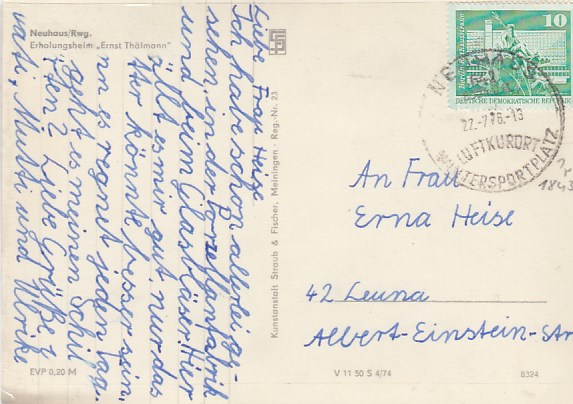 Neuhaus/Rwg.
Erholungsheim „Ernst Thälmann"
Liebe Frau Heise
Ich habe schon allerlei ge-
sehen, in der Porzellanfabrik
und beim Glasbläser. Hier
gefällt es mir gut, nur das
Wetter könnte besser sein.
Denn es regnet jeden Tag.
geht es meinen Schil
den 2 Liebe Grüße v.
Vati, Mutti und Ulrike
EVP 0,20 M
Kunstanstalt Straub & Fischer, Meiningen - Reg.-Nr. 23
10
DEUTSCHE DEMOKRATISCHE REPUBLIK
NEUHAUS
22.-7.76.-13
LUFTKURORT
WINTERSPORTPLATZ
1843
An Frau
Erna Heise
42 Leuna
Albert-Einstein-Str
V 11 50 S 4/74
8324